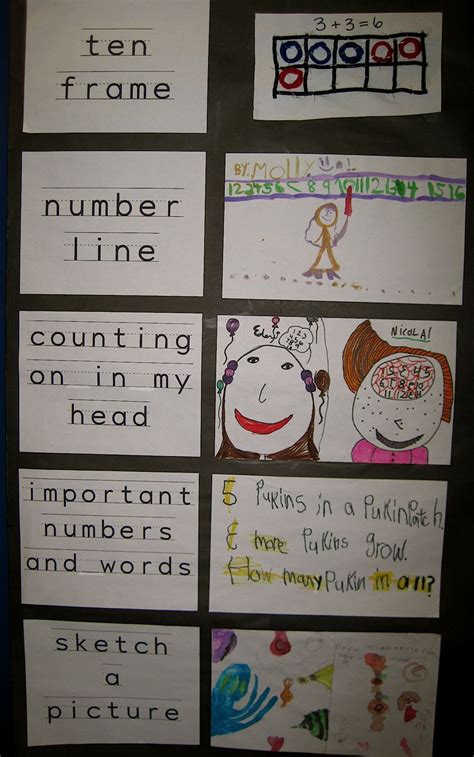 ten
frame
3+3=6
number
line
BY: Molly
123456< 8 9 10 11 12 13 14 15 16
counting
on in my
head
Eden
NICOLA!
important
numbers
and words
5 Pukins in a PukinPatch.
more Pukins grow.
How many Pukin in all?
sketch
a
picture